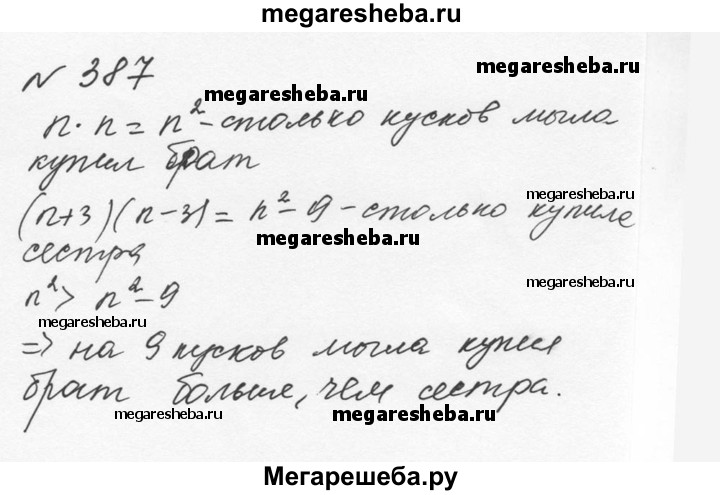 megaresheba.ru
N 387
megaresheba.ru
megaresheba.ru
n · n = n² - столько кусков мыла
купил брат
megaresheba.ru
(n+3)(n-3) = n² - 9 - столько купила
megaresheba.ru
сестра
megaresheba.ru
n² > n² - 9
megaresheba.ru
=> на 9 кусков мыла купил
megaresheba.ru
брат больше, чем сестра.
megaresheba.ru
megaresheba.ru
Мегарешеба.ру